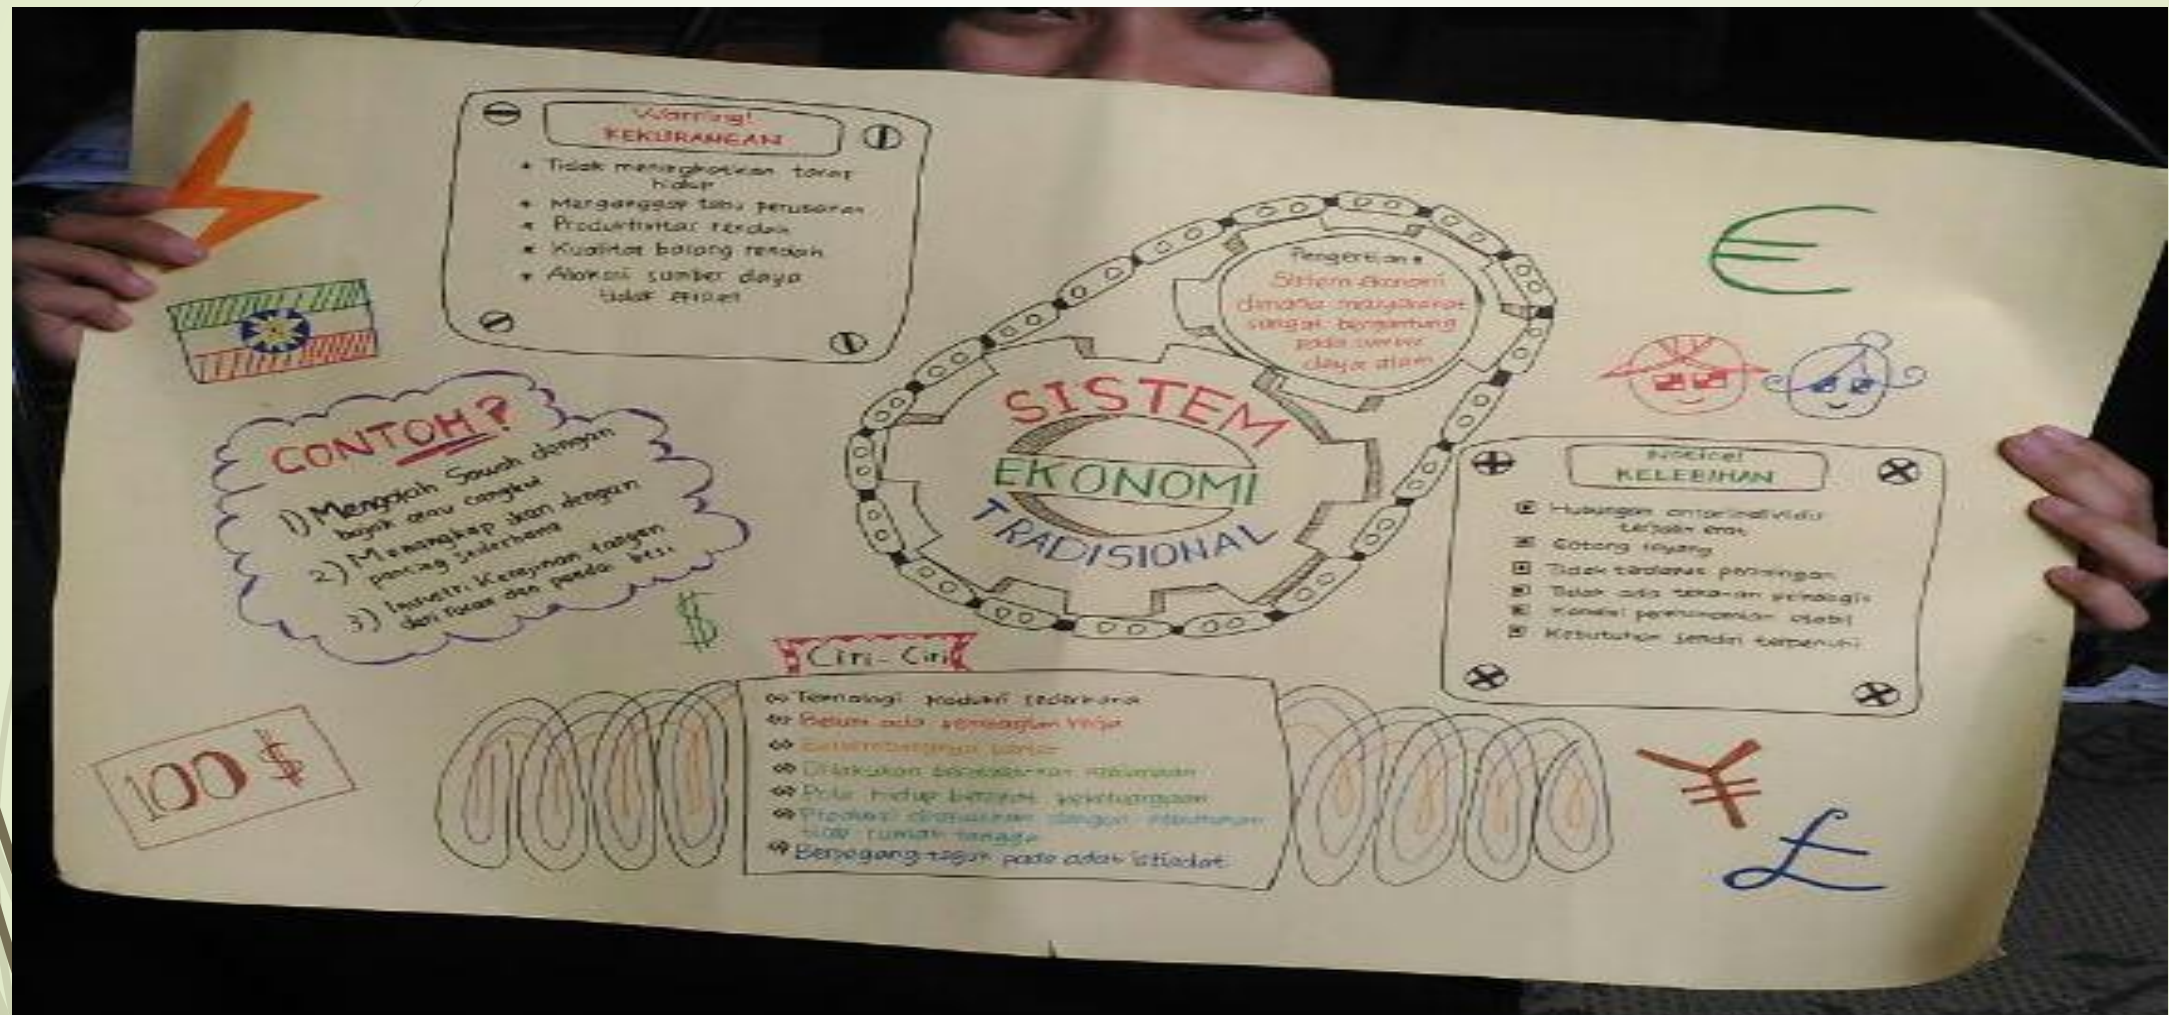 Warning!
KEKURANGAN
* Tidak meningkatkan taraf
hidup
* Menganggap tabu perubahan
* Produktivitas rendah
* Kualitas barang rendah
* Alokasi sumber daya
tidak efisien
Pengertian
Sistem ekonomi
dimana masyarakat
sangat bergantung
pada sumber
daya alam
SISTEM
EKONOMI
TRADISIONAL
€
CONTOH?
1) Mengolah Sawah dengan
bajak atau cangkul
2) Menangkap ikan dengan
pancing sederhana
3) Industri Kerajinan tangan
dari rotan dan pandai besi
$
100 $
Notice!
KELEBIHAN
Hubungan antarindividu
terjalin erat
Gotong royong
Tidak terdapat persaingan
Tidak ada tekanan
Kondisi perekonomian stabil
Kebutuhan sendiri terpenuhi
Ciri-Ciri
Teknologi produksi sederhana
Belum ada pembagian kerja
Dilakukan berdasarkan
Pola hidup bersifat kekeluargaan
Produksi disesuaikan dengan kebutuhan
tiap rumah tangga
Berpegang teguh pada adat istiadat
¥
£